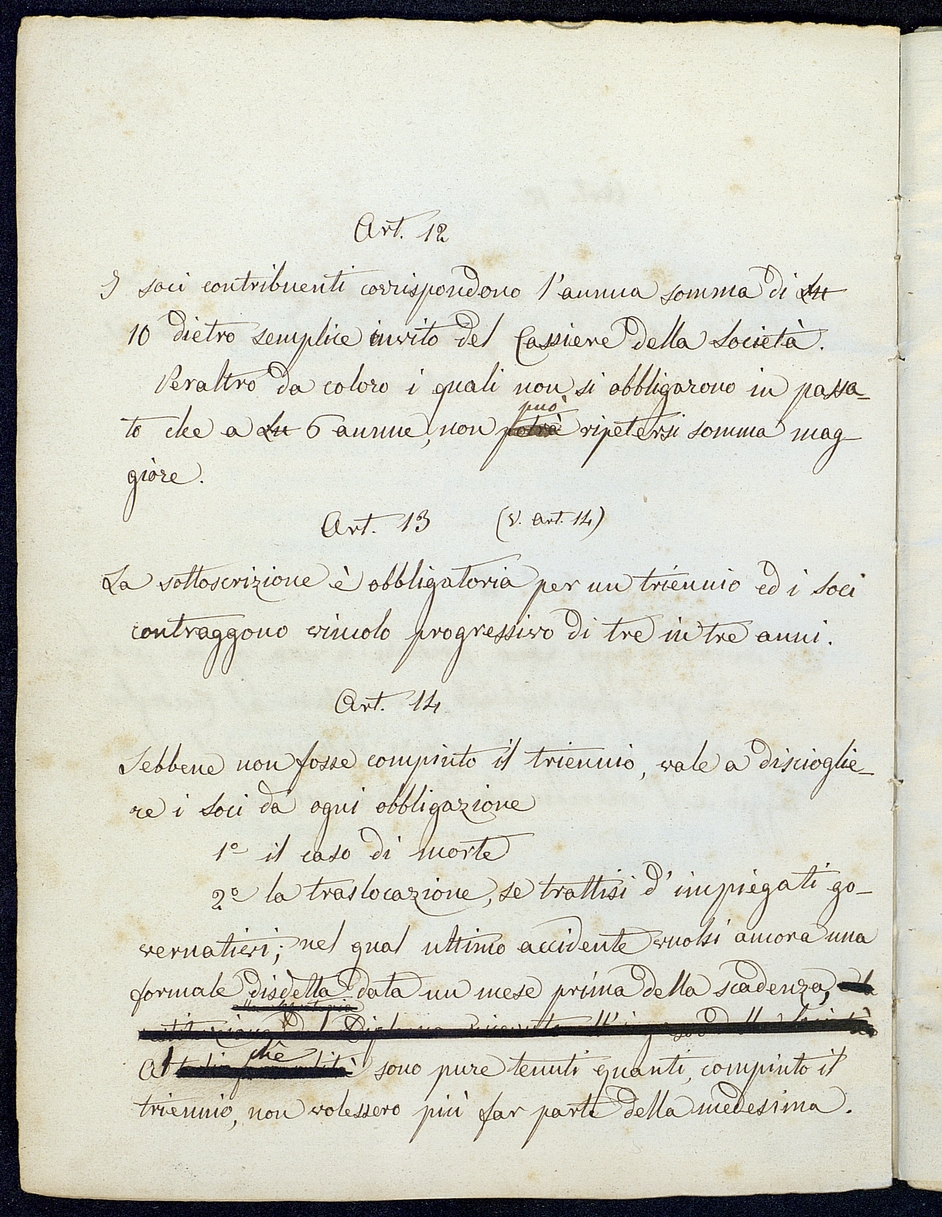 Art. 12
I soci contribuenti corrispondono l'annua somma di Ln
10 dietro semplice invito del Cassiere della Società.
Peraltro da coloro i quali non si obbligarono in passa-
può
to che a Ln 6 annue, non potrà ripetersi somma mag
giore.
Art. 13 (V. art. 14)
La sottoscrizione è obbligatoria per un triennio ed i Soci
contraggono vincolo progressivo di tre in tre anni.
Art. 14
Sebbene non fosse compiuto il triennio, vale a discioglie-
re i Soci da ogni obbligazione
1º il caso di morte
2º la traslocazione, se trattisi d'impiegati go-
vernativi; nel qual ultimo accidente vuolsi ancora una
formale disdetta data un mese prima della scadenza, e la
Al che sono pure tenuti quanti, compiuto il
triennio, non volessero più far parte della medesima.